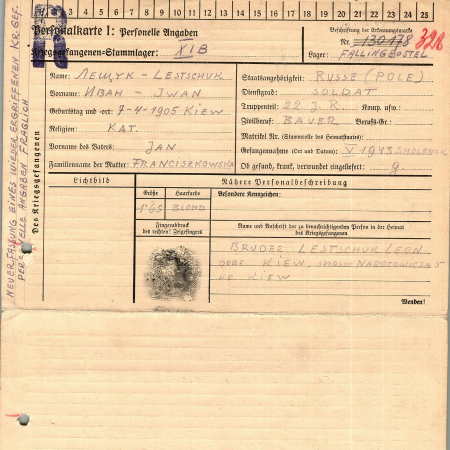 1 2 3 4 5 6 7 8 9 10 11 12 13 14 15 16 17 18 19 20 21 22 23 24 25
Personalkarte I: Personelle Angaben
Kriegsgefangenen-Stammlager: XIB
Beschriftung der Erkennungsmarke
Nr. 130178 328
Lager: FALLINGBOSTEL
NEUERFASSUNG EINES WIEDERERGRIFFENEN KR.GEF.
PERSONELLE ANGABEN FRAGLICH
Des Kriegsgefangenen
Name: ЛЕЩУК - LESTSCHUK
Vorname: ИВАН - IWAN
Geburtstag und -ort: 7-4-1905 KIEW
Religion: KAT.
Vorname des Vaters: JAN
Familienname der Mutter: FRANCISZKOWSKA
Staatsangehörigkeit: RUSSE (POLE)
Dienstgrad: SOLDAT
Truppenteil: 22 J.R. Komp. usw.:
Zivilberuf: BAUER Berufs-Gr.:
Matrikel Nr. (Stammrolle des Heimatstaates):
Gefangennahme (Ort und Datum): V 1943 SMOLENSK
Ob gesund, krank, verwundet eingeliefert: g
Lichtbild
Nähere Personalbeschreibung
Größe Haarfarbe Besondere Kennzeichen:
1'65 BLOND
Fingerabdruck
des rechten! Zeigefingers
Name und Anschrift der zu benachrichtigenden Person in der Heimat
des Kriegsgefangenen
BRUDER LESTSCHUK LEON
DORF KIEW NAROTOWICZA 5
KR KIEW
Wenden!